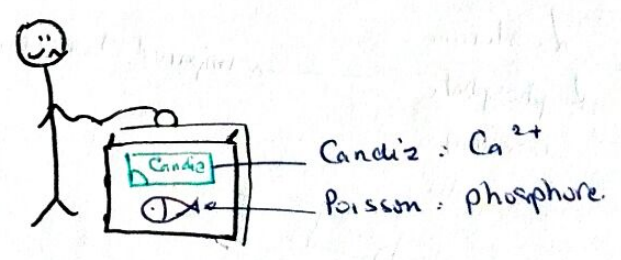 Candiz
Candiz : Ca²⁺
Poisson : phosphore.